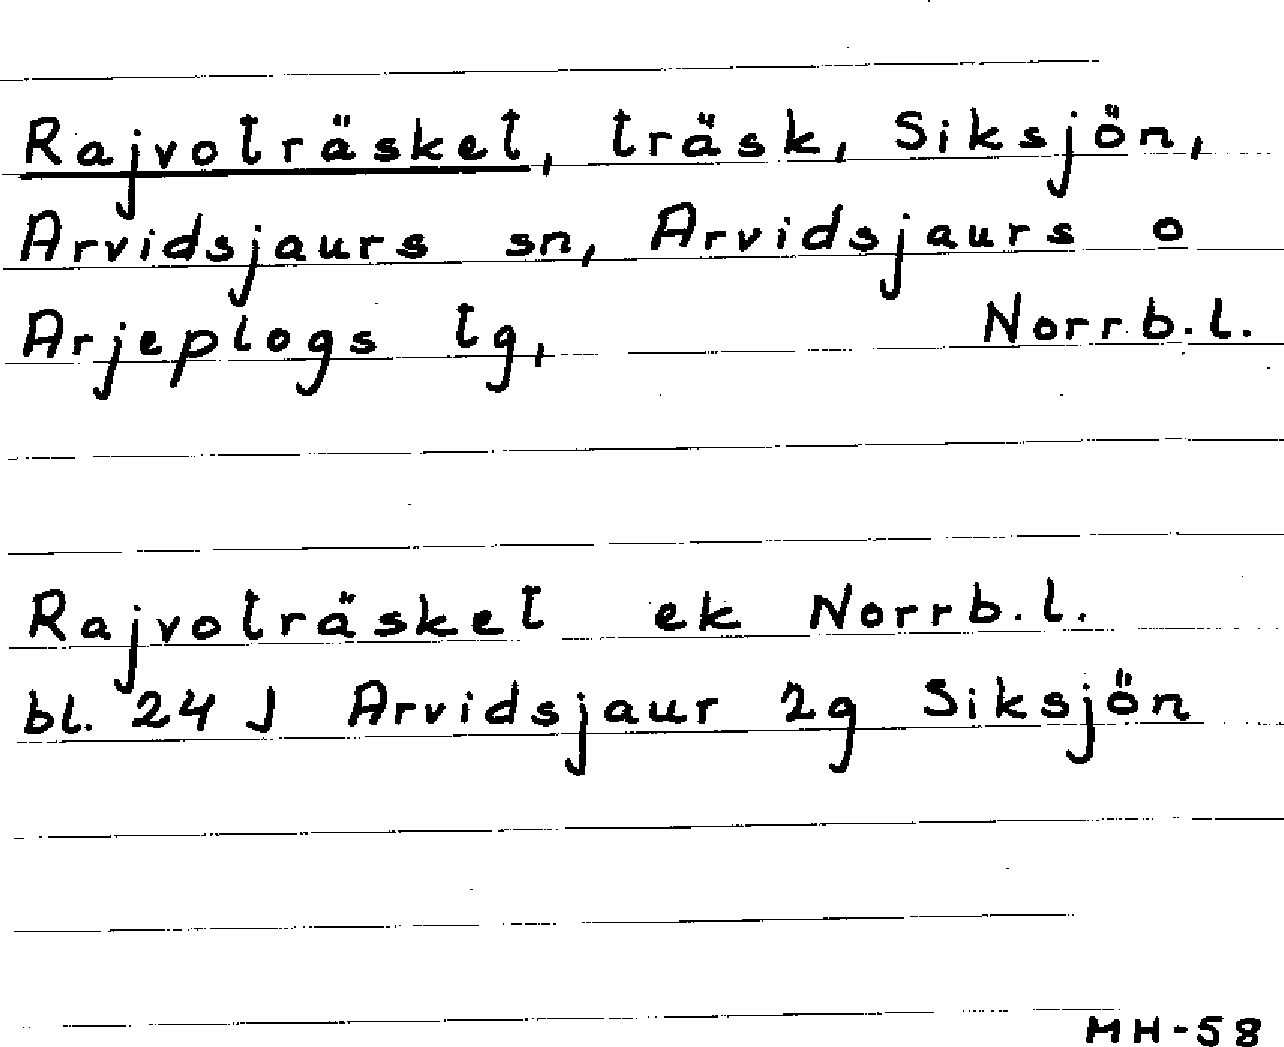 Rajvoträsket, träsk, Siksjön,
Arvidsjaurs sn, Arvidsjaurs o
Arjeplogs lg, Norrb.l.
Rajvoträsket ek Norrb.l.
bl. 24 J Arvidsjaur 2g Siksjön
MH-58